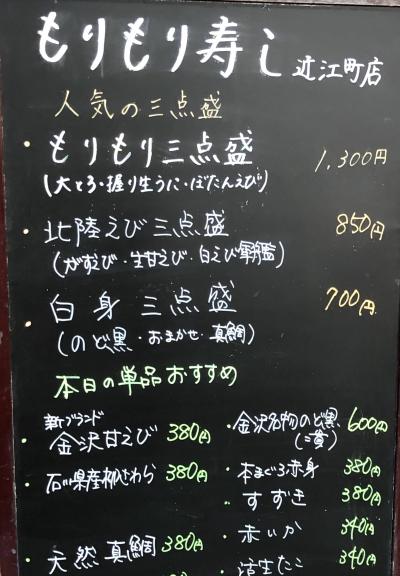 もりもり寿し 近江町店
人気の三点盛
・もりもり三点盛 1,300円
(大とろ・握り生うに・ぼたんえび)
・北陸えび三点盛 850円
(がすえび・生甘えび・白えび軍艦)
・白身三点盛 700円
(のど黒・おまかせ・真鯛)
本日の単品おすすめ
新ブランド
・金沢甘えび 380円
・石川県産柳さわら 380円
・天然真鯛 380円
・金沢名物のど黒 600円
(一貫)
・本まぐろ赤身 380円
・すずき 380円
・赤いか 340円
・活生たこ 340円